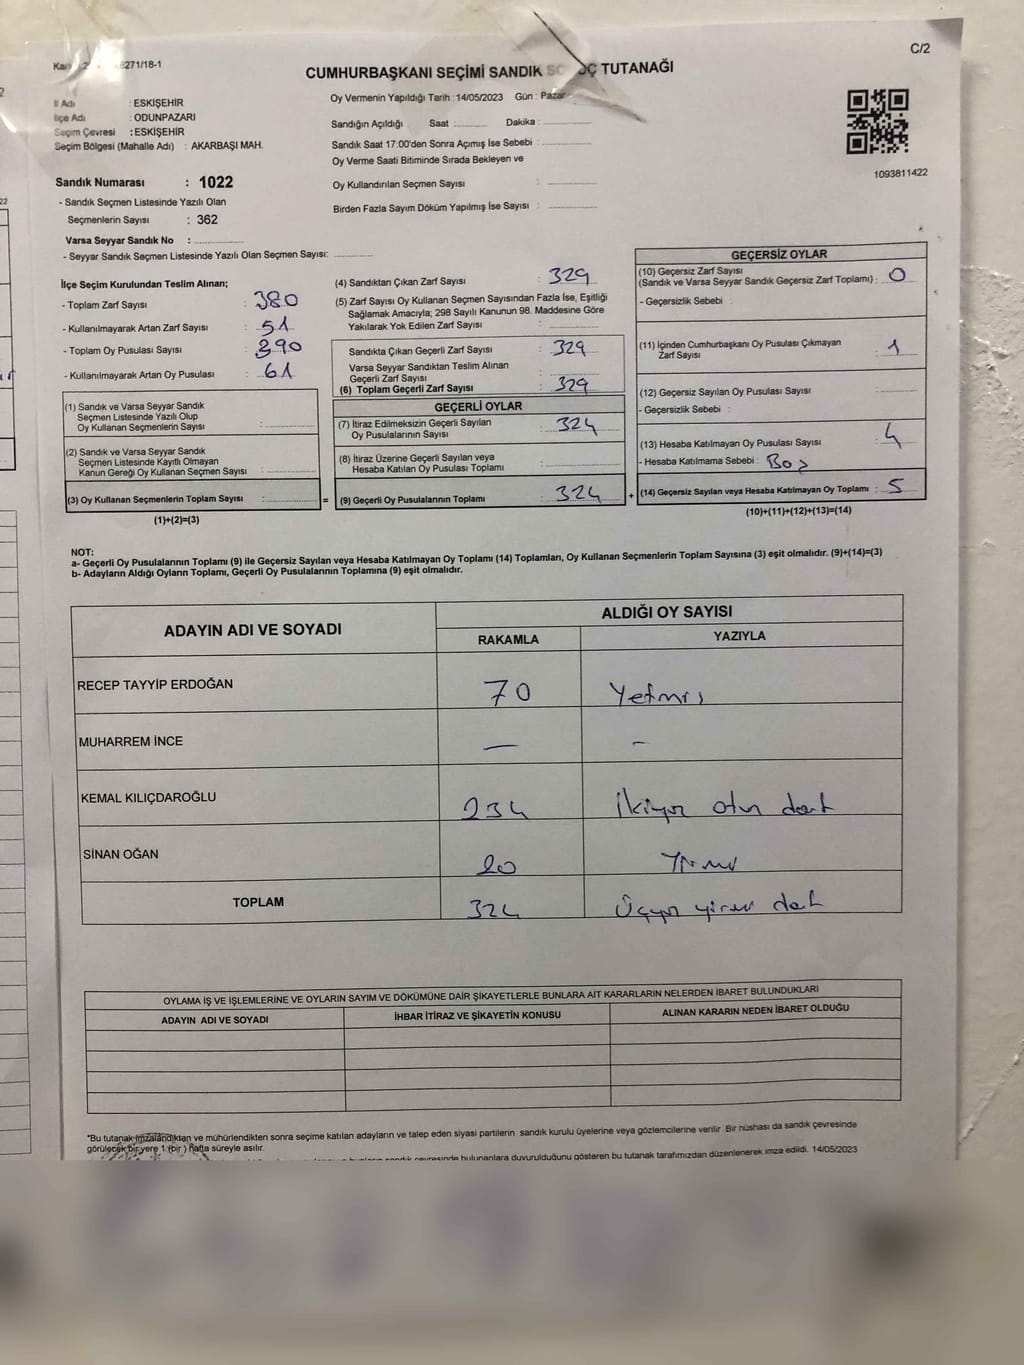 C/2
271/18-1
CUMHURBAŞKANI SEÇİMİ SANDIK TUTANAĞI
İl Adı : ESKİŞEHİR
İlçe Adı : ODUNPAZARI
Seçim Çevresi : ESKİŞEHİR
Seçim Bölgesi (Mahalle Adı) : AKARBAŞI MAH.
Sandık Numarası : 1022
- Sandık Seçmen Listesinde Yazılı Olan
Seçmenlerin Sayısı : 362
Varsa Seyyar Sandık No : ..............
- Seyyar Sandık Seçmen Listesinde Yazılı Olan Seçmen Sayısı: ............
Oy Vermenin Yapıldığı Tarih :14/05/2023 Gün : Pazar
Sandığın Açıldığı Saat :.......... Dakika : ..............
Sandık Saat 17:00'den Sonra Açımış İse Sebebi : ..............
Oy Verme Saati Bitiminde Sırada Bekleyen ve
Oy Kullandırılan Seçmen Sayısı : ..............
Birden Fazla Sayım Döküm Yapılmış İse Sayısı : ..............
1093811422
İlçe Seçim Kurulundan Teslim Alınan;
- Toplam Zarf Sayısı : 380
- Kullanılmayarak Artan Zarf Sayısı : 51
- Toplam Oy Pusulası Sayısı : 390
- Kullanılmayarak Artan Oy Pusulası : 61
(1) Sandık ve Varsa Seyyar Sandık
Seçmen Listesinde Yazılı Olup
Oy Kullanan Seçmenlerin Sayısı : ..............
(2) Sandık ve Varsa Seyyar Sandık
Seçmen Listesinde Kayıtlı Olmayan
Kanun Gereği Oy Kullanan Seçmen Sayısı : ..............
(3) Oy Kullanan Seçmenlerin Toplam Sayısı : .............. =
(1)+(2)=(3)
(4) Sandıktan Çıkan Zarf Sayısı : 329
(5) Zarf Sayısı Oy Kullanan Seçmen Sayısından Fazla İse, Eşitliği
Sağlamak Amacıyla; 298 Sayılı Kanunun 98. Maddesine Göre
Yakılarak Yok Edilen Zarf Sayısı : ..............
Sandıkta Çıkan Geçerli Zarf Sayısı : 329
Varsa Seyyar Sandıktan Teslim Alınan
Geçerli Zarf Sayısı : ..............
(6) Toplam Geçerli Zarf Sayısı : 329
GEÇERLİ OYLAR
(7) İtiraz Edilmeksizin Geçerli Sayılan
Oy Pusulalarının Sayısı : 324
(8) İtiraz Üzerine Geçerli Sayılan veya
Hesaba Katılan Oy Pusulası Toplamı : ..............
(9) Geçerli Oy Pusulalarının Toplamı : 324 +
GEÇERSİZ OYLAR
(10) Geçersiz Zarf Sayısı
(Sandık ve Varsa Seyyar Sandık Geçersiz Zarf Toplamı) : 0
- Geçersizlik Sebebi :
(11) İçinden Cumhurbaşkanı Oy Pusulası Çıkmayan
Zarf Sayısı : 1
(12) Geçersiz Sayılan Oy Pusulası Sayısı : ..............
- Geçersizlik Sebebi :
(13) Hesaba Katılmayan Oy Pusulası Sayısı : 4
- Hesaba Katılmama Sebebi : Boş
(14) Geçersiz Sayılan veya Hesaba Katılmayan Oy Toplamı : 5
(10)+(11)+(12)+(13)=(14)
NOT:
a- Geçerli Oy Pusulalarının Toplamı (9) ile Geçersiz Sayılan veya Hesaba Katılmayan Oy Toplamı (14) Toplamları, Oy Kullanan Seçmenlerin Toplam Sayısına (3) eşit olmalıdır. (9)+(14)=(3)
b- Adayların Aldığı Oyların Toplamı, Geçerli Oy Pusulalarının Toplamına (9) eşit olmalıdır.
ADAYIN ADI VE SOYADI ALDIĞI OY SAYISI
RAKAMLA YAZIYLA
RECEP TAYYİP ERDOĞAN 70 Yetmiş
MUHARREM İNCE — -
KEMAL KILIÇDAROĞLU 234 İkiyüz otuz dört
SİNAN OĞAN 20 Yirmi
TOPLAM 324 Üçyüz yirmi dört
OYLAMA İŞ VE İŞLEMLERİNE VE OYLARIN SAYIM VE DÖKÜMÜNE DAİR ŞİKAYETLERLE BUNLARA AİT KARARLARIN NELERDEN İBARET BULUNDUKLARI
ADAYIN ADI VE SOYADI İHBAR İTİRAZ VE ŞİKAYETİN KONUSU ALINAN KARARIN NEDEN İBARET OLDUĞU
*Bu tutanak imzalandıktan ve mühürlendikten sonra seçime katılan adayların ve talep eden siyasi partilerin sandık kurulu üyelerine veya gözlemcilerine verilir. Bir nüshası da sandık çevresinde
görülecek bir yere 1 (bir) hafta süreyle asılır.
sandık çevresinde bulunanlara duyurulduğunu gösteren bu tutanak tarafımızdan düzenlenerek imza edildi. 14/05/2023